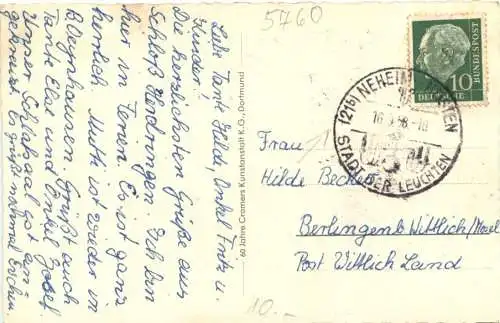 5760
Liebe Tante Hilde, Onkel Fritz u.
Kinder!
Die herzlichsten Grüße aus
Schloß Herdringen. Ich bin
hier in Ferien. Es ist ganz
herrlich. Mutti ist wieder in
Grüßt auch
Tante Else und Onkel Josef.
Unser Schlafsaal ist ganz
Es grüßt nochmal
60 Jahre Cramers Kunstanstalt K.G., Dortmund
10.-
10
DEUTSCHE
BUNDESPOST
(21b) NEHEIM-
STADT DER LEUCHTEN
Frau
Hilde
Berlingen b. Wittlich/Mosel
Post Wittlich Land